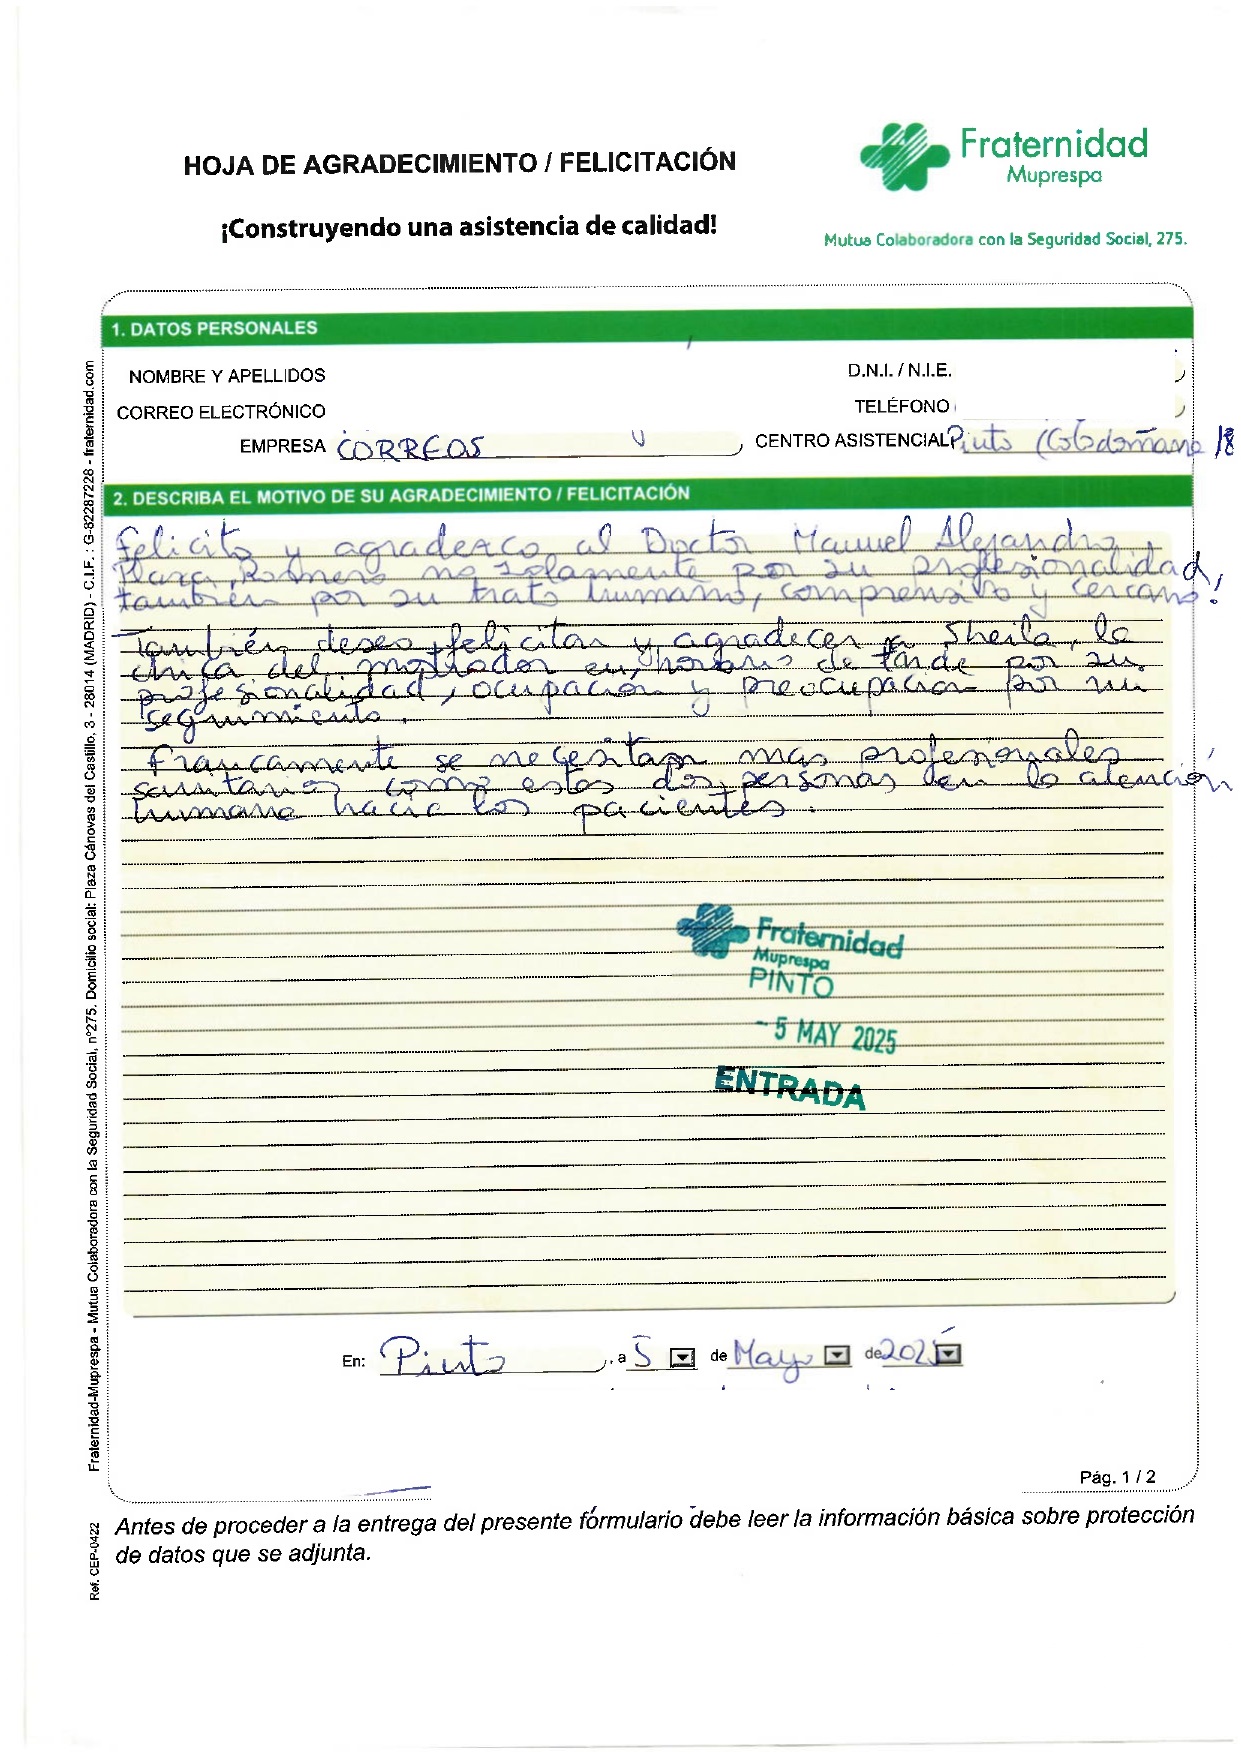 HOJA DE AGRADECIMIENTO / FELICITACIÓN
¡Construyendo una asistencia de calidad!
Fraternidad
Muprespa
Mutua Colaboradora con la Seguridad Social, 275.
1. DATOS PERSONALES
NOMBRE Y APELLIDOS
D.N.I. / N.I.E.
CORREO ELECTRÓNICO
TELÉFONO
EMPRESA CORREOS
CENTRO ASISTENCIAL Pinto
2. DESCRIBA EL MOTIVO DE SU AGRADECIMIENTO / FELICITACIÓN
Felicito y agradezco al Doctor Manuel Alejandro
Plaza Romero no solamente por su profesionalidad,
también por su trato humano, comprensivo y cercano!
También deseo felicitar y agradecer a Sheila, la
chica del mostrador en horario de tarde por su
profesionalidad, ocupación y preocupación por mi
seguimiento.
Francamente se necesitan mas profesionales
sanitarios como estas dos personas en la atención
humana hacia los pacientes.
Fraternidad
Muprespa
PINTO
- 5 MAY 2025
ENTRADA
En: Pinto, a 5 de Mayo de 2025
Pág. 1 / 2
Antes de proceder a la entrega del presente formulario debe leer la información básica sobre protección
de datos que se adjunta.
Fraternidad-Muprespa - Mutua Colaboradora con la Seguridad Social, nº275. Domicilio social: Plaza Cánovas del Castillo, 3 - 28014 (MADRID) - C.I.F. : G-82287228 - fraternidad.com
Ref. CEP-0422